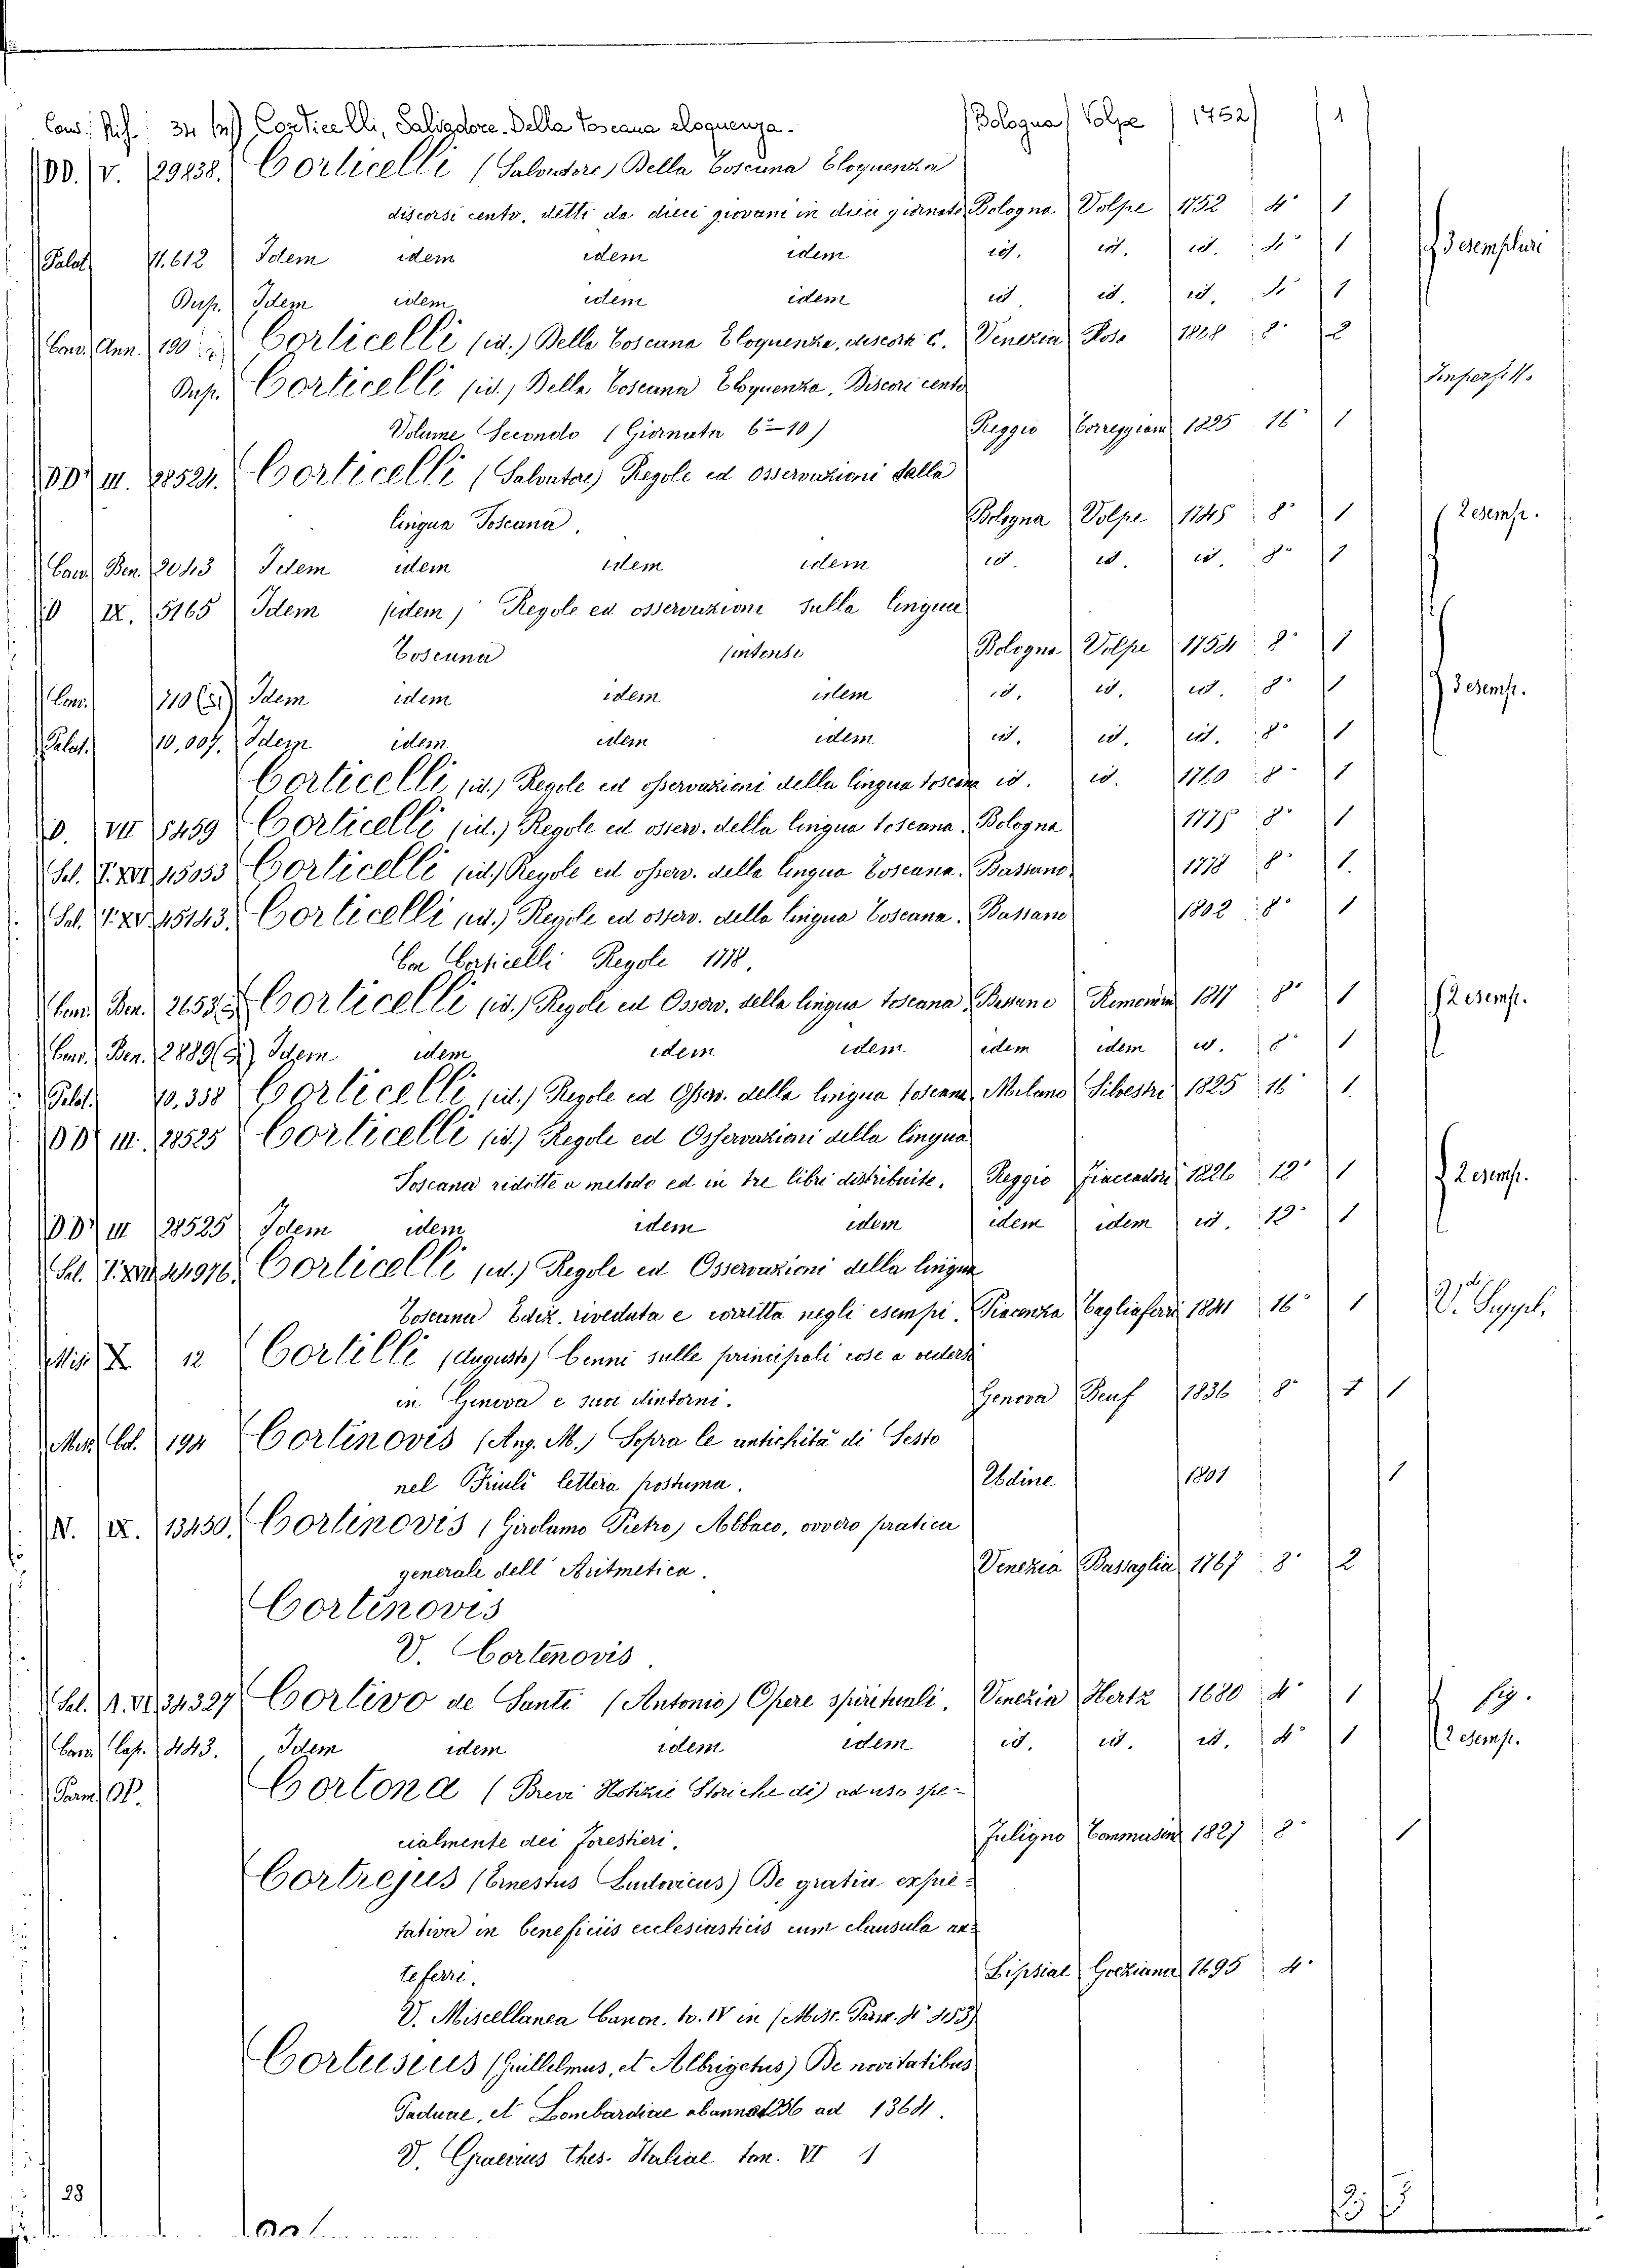 Cons. Rif. 34 Corticelli, Salvadore. Della Toscana eloquenza. Bologna Volpe 1752 1
DD. V. 29838. Corticelli (Salvatore) Della Toscana Eloquenza
discorsi cento, detti da dieci giovani in dieci giornate Bologna Volpe 1752 4° 1
Palat. 11.612 Idem idem idem idem id. id. id. 4° 1 3 esemplari
Dup. Idem idem idem idem id. id. id. 4° 1
Cons. Ann. 190 Corticelli (id.) Della Toscana Eloquenza, discorsi c. Venezia Rosa 1808 8° 2
Dup. Corticelli (id.) Della Toscana Eloquenza, Discorsi cento
Volume Secondo (Giornata 6-10) Reggio Torreggiani 1825 16° 1 Imperfetto
DD. III. 28524. Corticelli (Salvatore) Regole ed osservazioni dalla
lingua Toscana. Bologna Volpe 1745 8° 1 2 esemp.
Cons. Ben. 2043 Idem idem idem idem id. id. id. 8° 1
D IX. 5165 Idem (idem) Regole ed osservazione sulla lingua
Toscana (intense Bologna Volpe 1754 8° 1
Cons. 710 Idem idem idem idem id. id. id. 8° 1 3 esemp.
Palat. 10,007. Idem idem idem idem id. id. id. 8° 1
Corticelli (id.) Regole ed osservazioni della lingua toscana id. id. 1760 8° 1
D. VII 5459 Corticelli (id.) Regole ed osserv. della lingua toscana. Bologna 1775 8° 1
Sal. T. XVI 45053 Corticelli (id.) Regole ed osserv. della lingua Toscana. Bassano 1778 8° 1.
Sal. T. XV 45143. Corticelli (id.) Regole ed osserv. della lingua Toscana. Bassano 1802 8° 1
Con Corticelli Regole 1778.
Cons. Ben. 2653 Corticelli (id.) Regole ed Osserv. della lingua toscana, Bassano Remondini 1817 8° 1 2 esemp.
Cons. Ben. 2889 Idem idem idem idem. idem idem id. 8° 1
Palat. 10.358 Corticelli (id.) Regole ed Osserv. della lingua toscana, Milano Silvestri 1825 16° 1.
DD. III. 28525 Corticelli (id.) Regole ed Osservazioni della lingua
Toscana ridotte a metodo ed in tre libri distribuite. Reggio Fiaccadori 1826 12° 1 2 esemp.
DD. III 28525 Idem idem idem idem idem idem id. 12° 1
Sal. T. XVI 44976. Corticelli (id.) Regole ed Osservazioni della lingua
Toscana Ediz. riveduta e corretta negli esempi. Piacenza Tagliaferri 1841 16° 1 V. de Suppl.
Misc. X 12 Cortilli (Augusto) Cenni sulle principali cose a vedersi
in Genova e suoi dintorni. Genova Beuf 1836 8° 1 1
Misc. Col. 194 Cortinovis (Ang. M.) Sopra le antichità di Sesto
nel Friuli lettera postuma. Udine 1801 1
N. IX. 13450. Cortinovis (Girolamo Pietro) Abbaco, ovvero pratica
generale dell' Aritmetica. Venezia Bassaglia 1767 8° 2
Cortinovis
V. Cortenovis.
Sal. A. VI 34327 Cortivo de Santi (Antonio) Opere spirituali. Venezia Hertz 1680 4° 1 fig.
Cons. Cap. 443. Idem idem idem idem id. id. id. 4° 1 2 esemp.
Parm. OP. Cortona (Brevi Notizie Storiche di) ad uso spe-
cialmente dei forestieri. Fuligno Tommasini 1827 8° 1
Cortrejus (Ernestus Ludovicus) De gratia expec-
tativa in beneficiis ecclesiasticis cum clausula an-
teferri. Lipsiae Goeziana 1695 4°
V. Miscellanea Canon. to. IV in (Misc. Parm. 4° 453)
Cortusius (Guillelmus, et Albrigetus) De novitatibus
Paduae, et Lombardiae ab anno 1256 ad 1364.
V. Graevius Thes. Italiae tom. VI 1
28